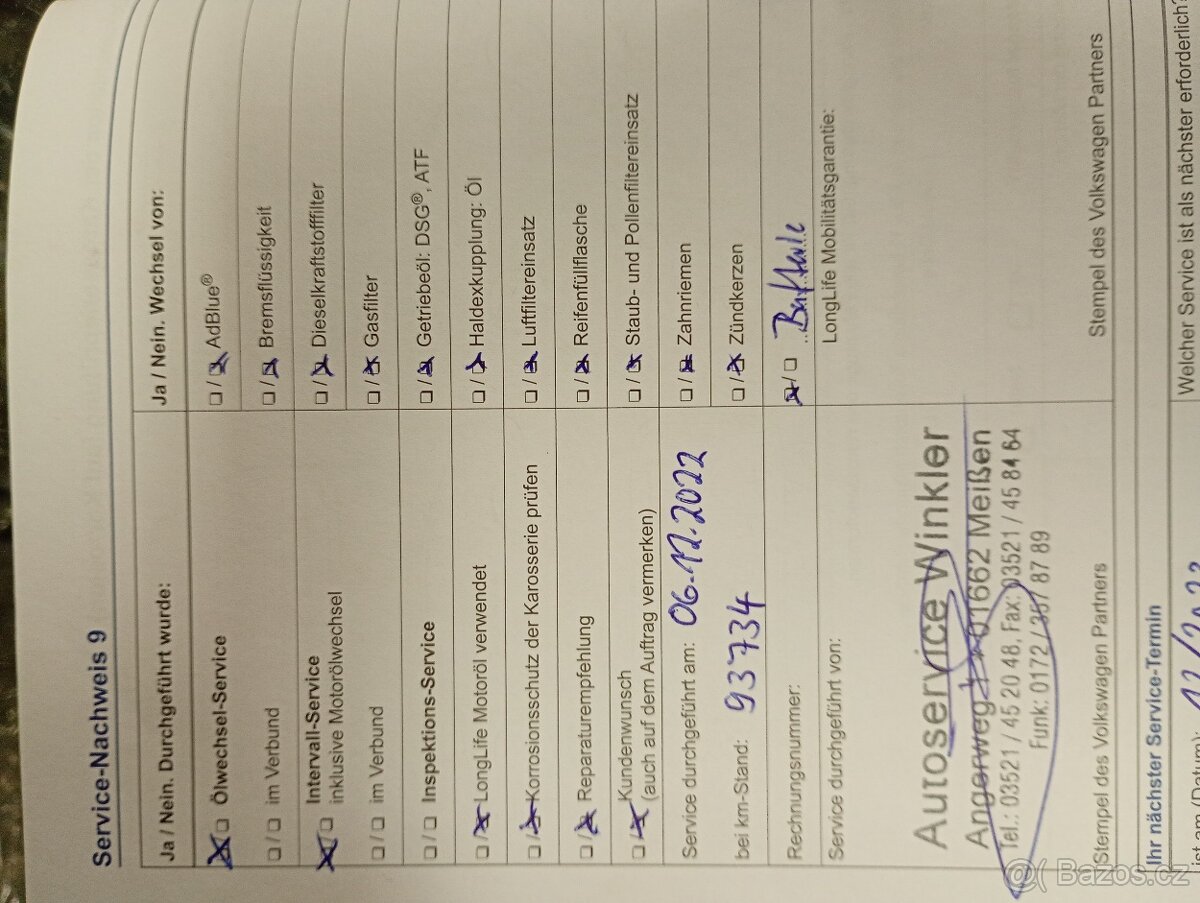 Service-Nachweis 9
Ja / Nein. Durchgeführt wurde:
☒ / ☐ Ölwechsel-Service
☐ / ☐ im Verbund
☒ / ☐ Intervall-Service
inklusive Motorölwechsel
☐ / ☐ im Verbund
☐ / ☐ Inspektions-Service
☐ / ☒ LongLife Motoröl verwendet
☐ / ☒ Korrosionsschutz der Karosserie prüfen
☐ / ☒ Reparaturempfehlung
☐ / ☒ Kundenwunsch
(auch auf dem Auftrag vermerken)
Service durchgeführt am: 06.12.2022
bei km-Stand: 93734
Rechnungsnummer:
Service durchgeführt von:
Autoservice Winkler
Angerweg 1 * 01662 Meißen
Tel.: 03521 / 45 20 48, Fax: 03521 / 45 84 64
Funk: 0172 / 357 87 89
Stempel des Volkswagen Partners
Ja / Nein. Wechsel von:
☐ / ☒ AdBlue®
☐ / ☒ Bremsflüssigkeit
☐ / ☒ Dieselkraftstofffilter
☐ / ☒ Gasfilter
☐ / ☒ Getriebeöl: DSG®, ATF
☐ / ☒ Haldexkupplung: Öl
☐ / ☒ Luftfiltereinsatz
☐ / ☒ Reifenfüllflasche
☐ / ☒ Staub- und Pollenfiltereinsatz
☐ / ☒ Zahnriemen
☐ / ☒ Zündkerzen
☒ / ☐
LongLife Mobilitätsgarantie:
Stempel des Volkswagen Partners
Ihr nächster Service-Termin
ist am (Datum):
Welcher Service ist als nächster erforderlich?
@( Bazos.cz